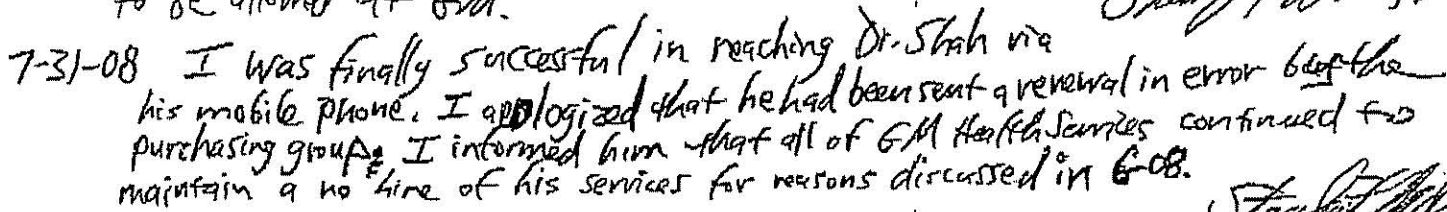 to be allowed at
7-31-08 I was finally successful in reaching Dr. Shah via
his mobile phone. I apologized that he had been sent a renewal in error by the
purchasing group. I informed him that all of GM Health Services continued to
maintain a no hire of his services for reasons discussed in 6-08.